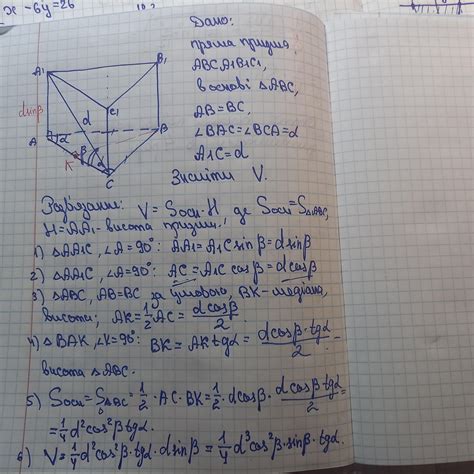 x - 6y = 26
Дано:
пряма призма,
ABCA1B1C1,
в основі △ABC,
AB=BC,
∠BAC=∠BCA=α
A1C=d
Знайти V.
A1
B1
C1
d sinβ
d
A
α
B
β
K
α
C
Розв'язання: V = Sосн·H, де Sосн=S△ABC,
H=AA1- висота призми.
1) △AA1C, ∠A=90°: AA1=A1C sinβ=d sinβ
2) △AA1C, ∠A=90°: AC=A1C cosβ=d cosβ
3) △ABC, AB=BC за умовою, BK-медіана,
висота; AK=1/2 AC = d cosβ/2
4) △BAK, ∠K=90°: BK=AK tgα = d cosβ·tgα/2 -
висота △ABC.
5) Sосн=S△ABC=1/2·AC·BK=1/2·d cosβ·d cosβ tgα/2=
=1/4 d²cos²β tgα.
6) V=1/4 d²cos²β·tgα·d sinβ = 1/4 d³cos²β·sinβ·tgα.